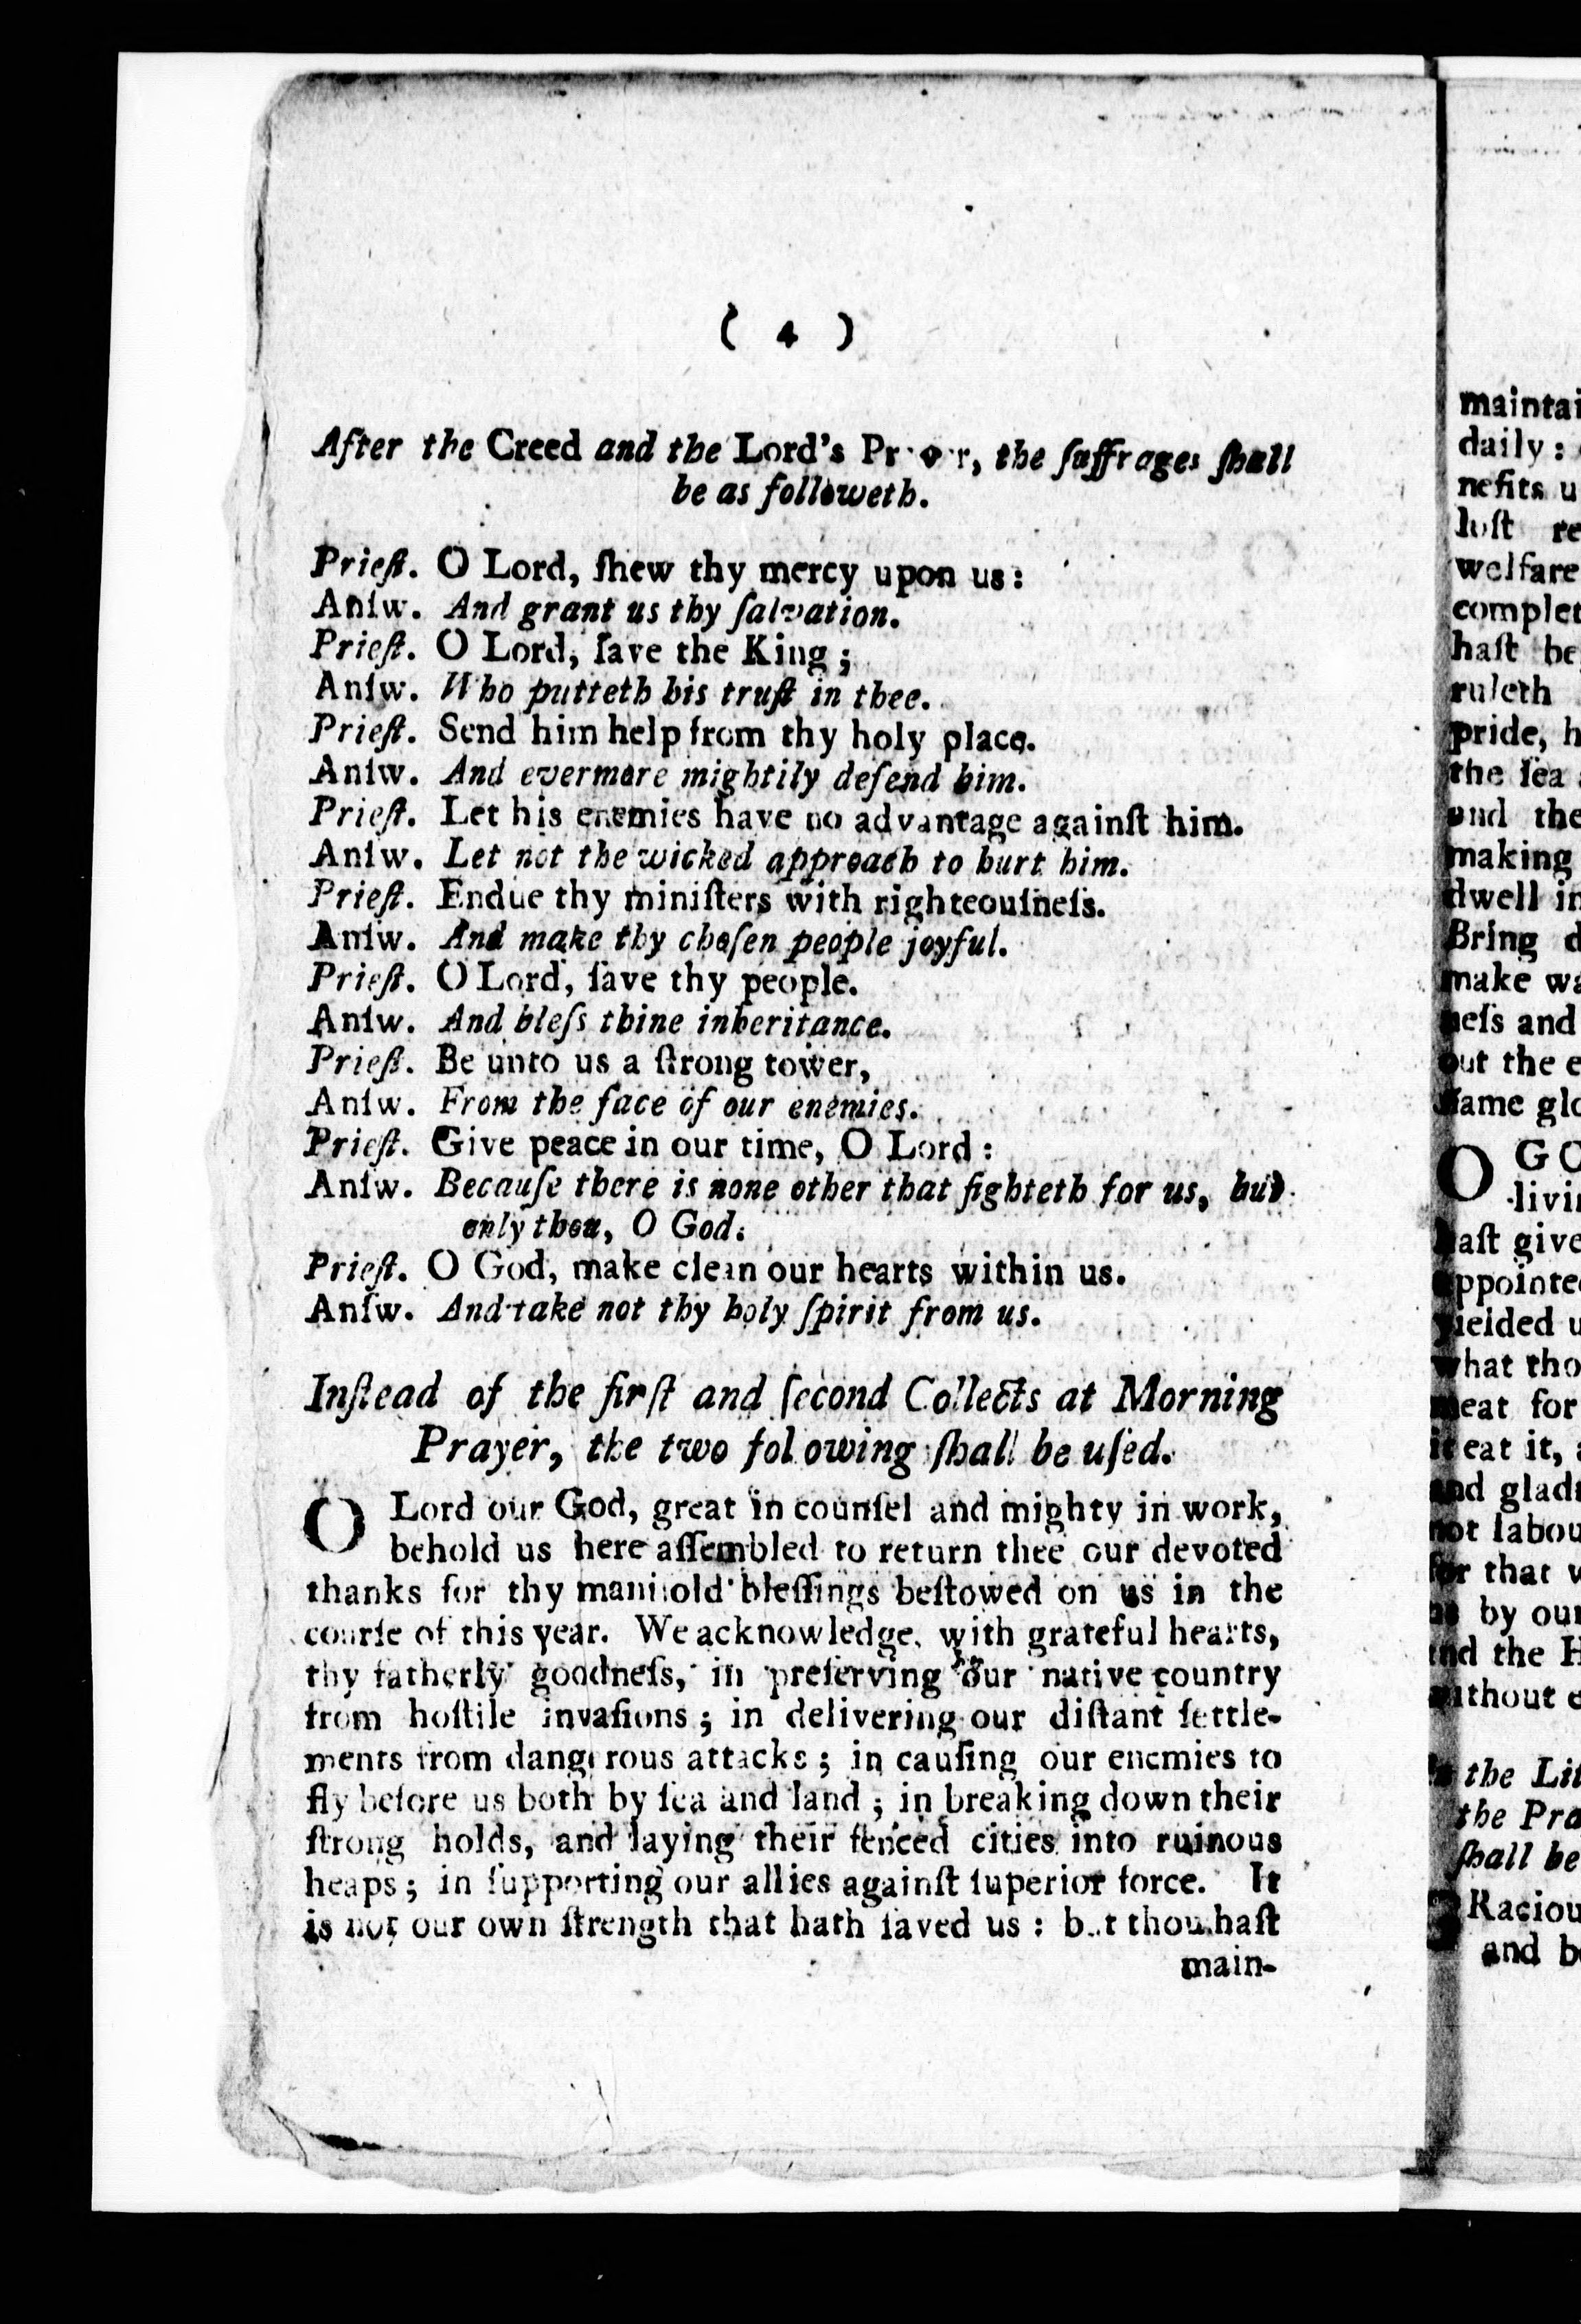 ( 4 )
After the Creed and the Lord's Pr, the ſuffrages ſhall
be as followeth.
Prieſt. O Lord, ſhew thy mercy upon us:
Anſw. And grant us thy ſalvation.
Prieſt. O Lord, ſave the King;
Anſw. Who putteth his truſt in thee.
Prieſt. Send him help from thy holy place.
Anſw. And evermore mightily defend him.
Prieſt. Let his enemies have no advantage againſt him.
Anſw. Let not the wicked approach to hurt him.
Prieſt. Endue thy miniſters with righteouſneſs.
Anſw. And make thy choſen people joyful.
Prieſt. O Lord, ſave thy people.
Anſw. And bleſs thine inheritance.
Prieſt. Be unto us a ſtrong tower,
Anſw. From the face of our enemies.
Prieſt. Give peace in our time, O Lord:
Anſw. Becauſe there is none other that fighteth for us, but
only thou, O God.
Prieſt. O God, make clean our hearts within us.
Anſw. And take not thy holy ſpirit from us.
Inſtead of the firſt and ſecond Collects at Morning
Prayer, the two following ſhall be uſed.
O Lord our God, great in counſel and mighty in work,
behold us here aſſembled to return thee our devoted
thanks for thy manifold bleſſings beſtowed on us in the
courſe of this year. We acknowledge, with grateful hearts,
thy fatherly goodneſs, in preſerving our native country
from hoſtile invaſions; in delivering our diſtant ſettle-
ments from dangerous attacks; in cauſing our enemies to
fly before us both by ſea and land; in breaking down their
ſtrong holds, and laying their fenced cities into ruinous
heaps; in ſupporting our allies againſt ſuperior force. It
is not our own ſtrength that hath ſaved us: but thou haſt
main-
maintai
daily:
nefits u
loſt re
welfare
complet
haſt be
ruleth
pride, h
the ſea
and the
making
dwell in
Bring d
make wa
neſs and
out the e
ſame glo
O GO
livin
haſt give
appointed
yielded u
what tho
meat for
it eat it,
and gladn
not labou
for that w
as by our
and the H
without e
the Lit
the Pra
ſhall be
Raciou
and b